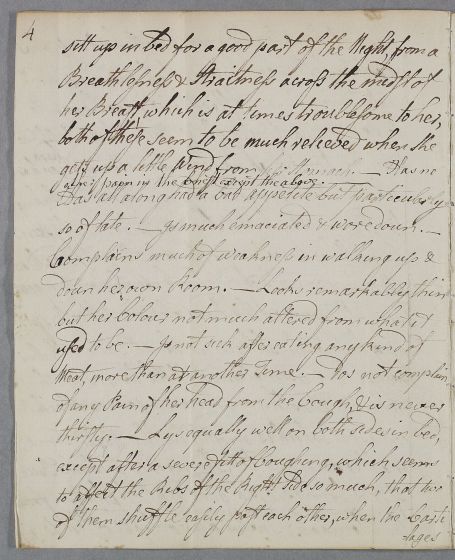 4
sitt up in bed for a good part of the Night, from a
Breathlesness & Straitness across the midst of
her Breast, which is at times troublesome to her,
both of these seem to be much relieved when she
gets up a little Wind from her Stomach. — Has no
pain in the breast except the above.
Has all along had a bad appetite but particularly
so of late. — Is much emaciated & wore down. —
Complains much of weakness in walking up &
down her own Room. — Looks remarkably thin
but her Colour not much altered from what it
used to be. — Is not sick after eating any kind of
Meat, more than at another Time. — Dos not complain
of any Pain of her head from the Cough, & is never
thirsty. — Lys equally well on both sides in bed,
except after a severe fitt of Coughing, which seems
to affect the Ribs of the Right Side so much, that two
of them shuffle easily past each other, when the Carti
lages